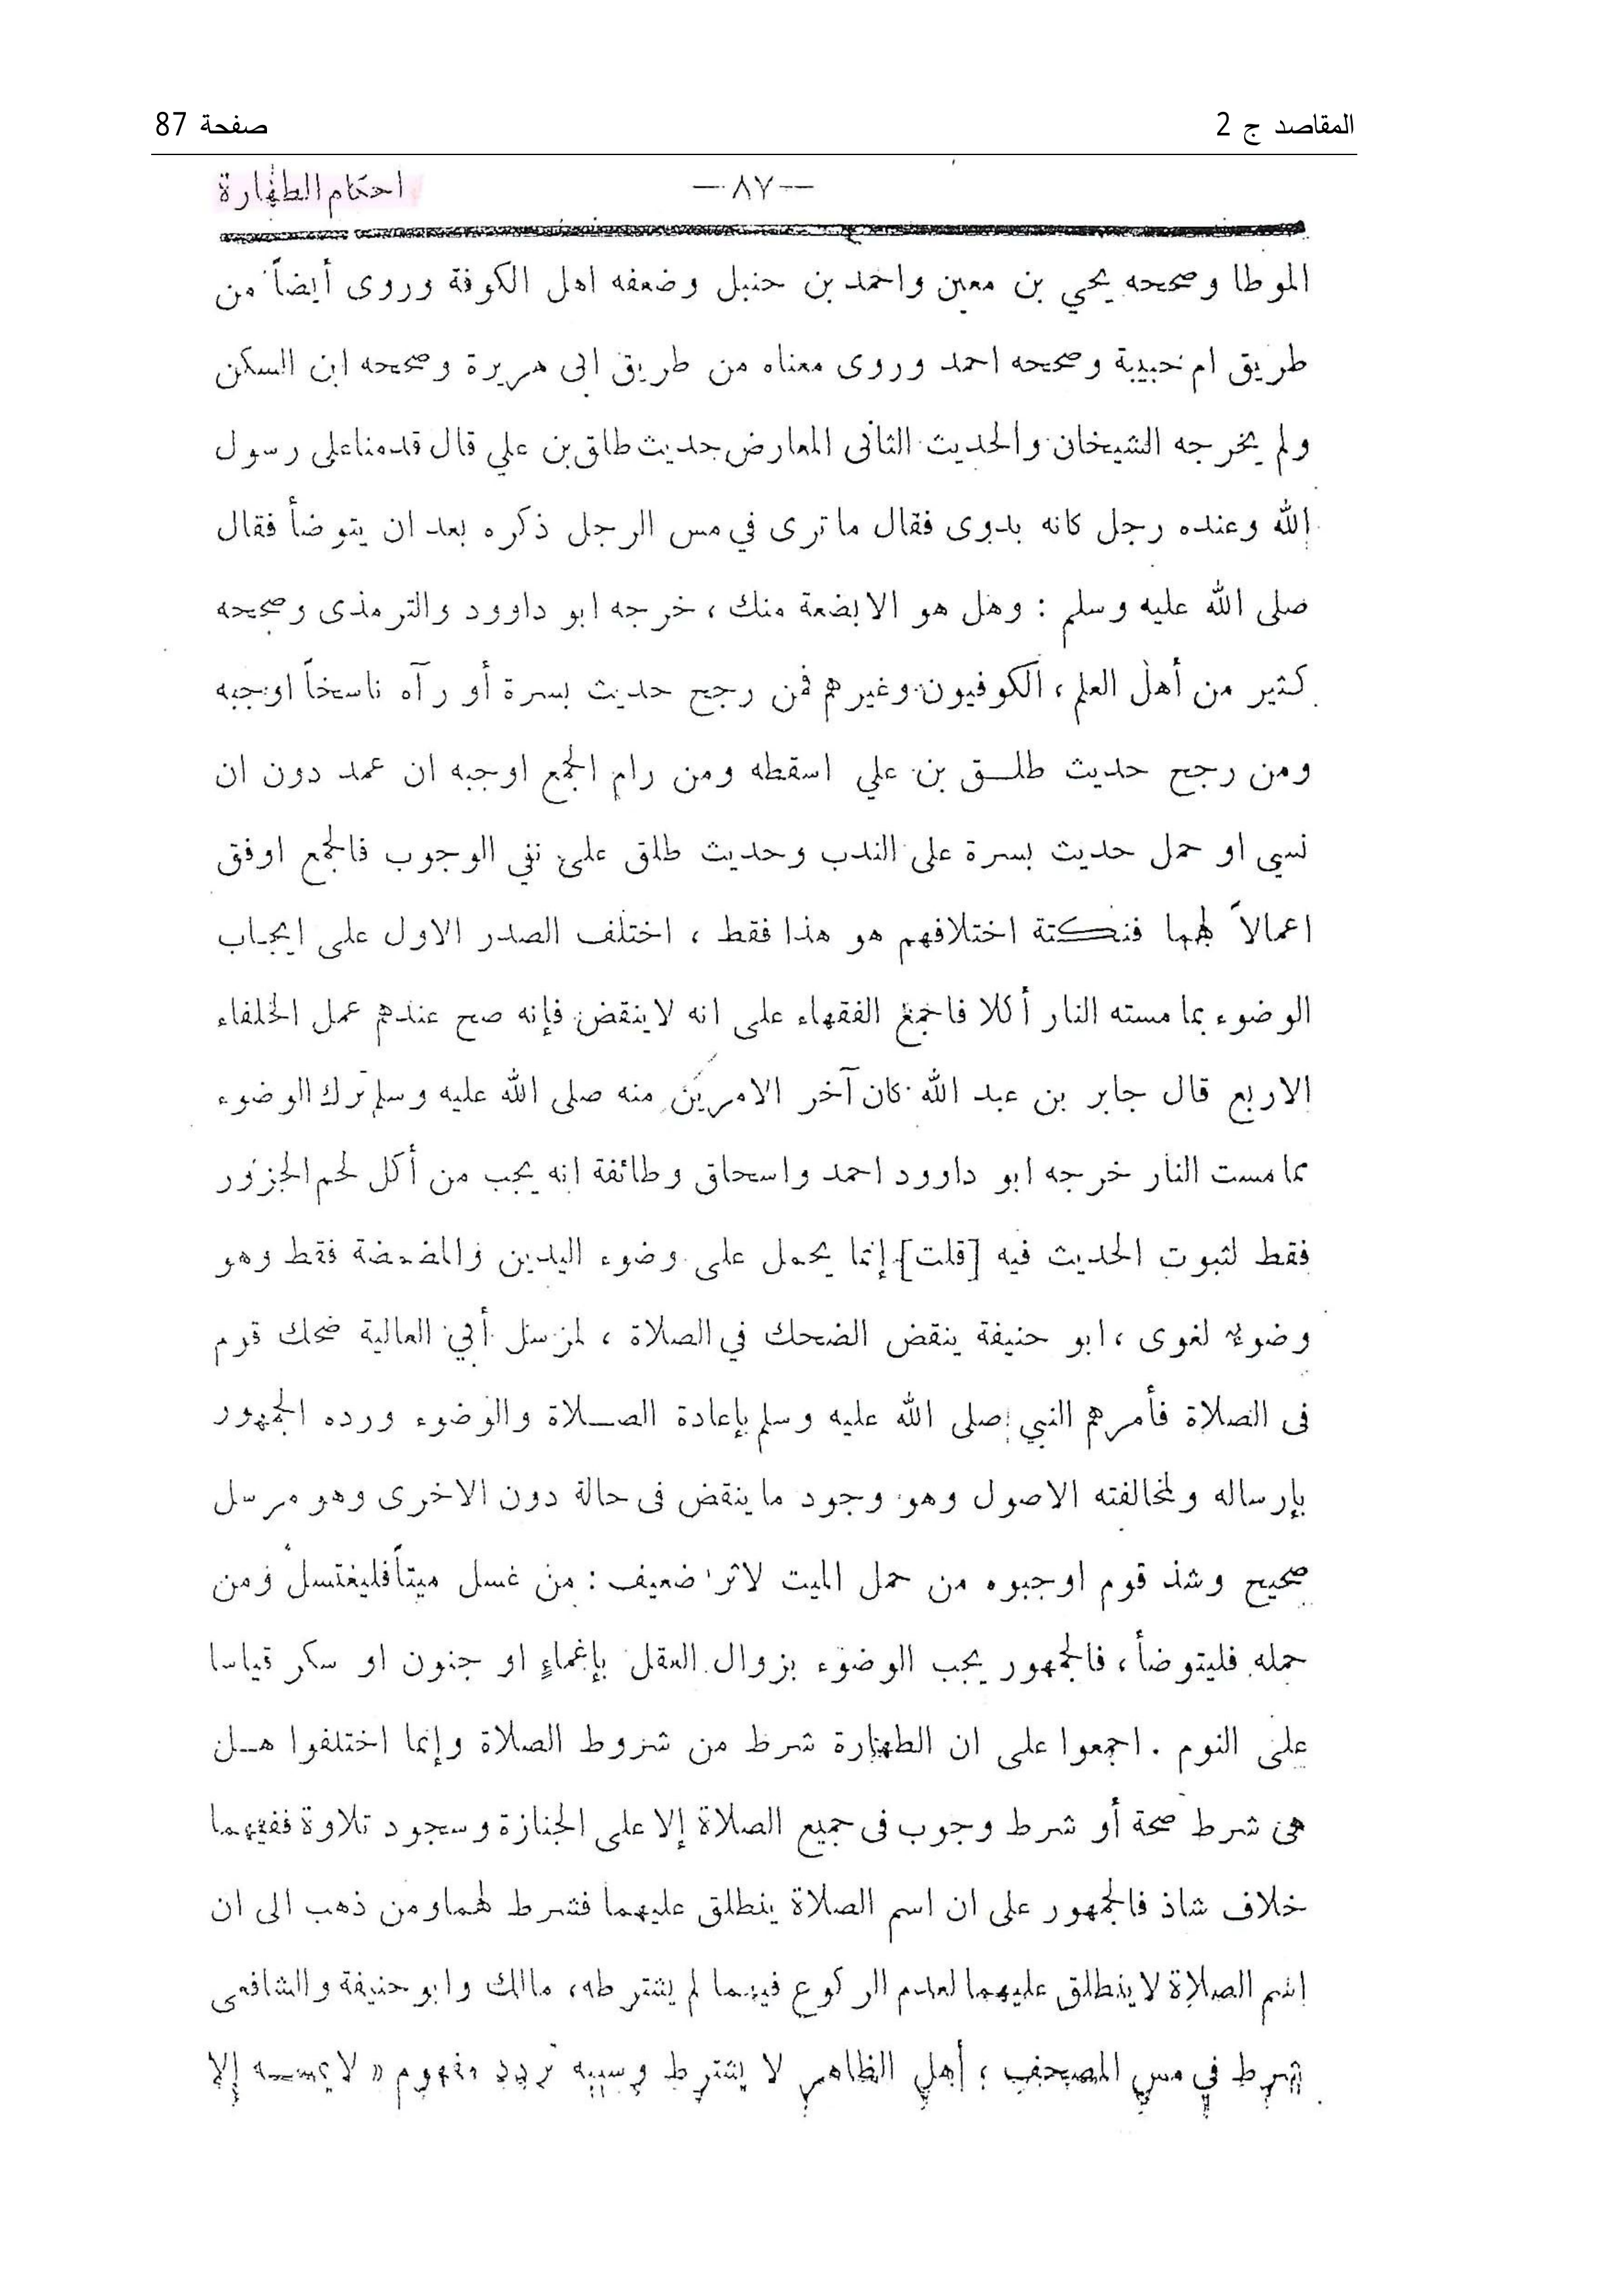 المقاصد ج 2
صفحة 87
—٨٧—
احكام الطهارة
الموطا وصححه يحي بن معين واحمد بن حنبل وضعفه اهل الكوفة وروى أيضاً من
طريق ام حبيبة وصححه احمد وروى معناه من طريق ابى هريرة وصححه ابن السكن
ولم يخرجه الشيخان والحديث الثانى المعارض حديث طلق بن علي قال قدمنا على رسول
الله وعنده رجل كانه بدوى فقال ما ترى في مس الرجل ذكره بعد ان يتوضأ فقال
صلى الله عليه وسلم : وهل هو الا بضعة منك ، خرجه ابو داوود والترمذى وصححه
كثير من أهل العلم ، الكوفيون وغيرهم فمن رجح حديث بسرة أو رآه ناسخاً اوجبه
ومن رجح حديث طلق بن علي اسقطه ومن رام الجمع اوجبه ان عمد دون ان
نسي او حمل حديث بسرة على الندب وحديث طلق على نفي الوجوب فالجمع اوفق
اعمالاً لهما فنكتة اختلافهم هو هذا فقط ، اختلف الصدر الاول على ايجاب
الوضوء بما مسته النار أكلا فاجمع الفقهاء على انه لا ينقض فإنه صح عندهم عمل الخلفاء
الاربع قال جابر بن عبد الله كان آخر الامرين منه صلى الله عليه وسلم ترك الوضوء
مما مست النار خرجه ابو داوود احمد واسحاق وطائفة انه يجب من أكل لحم الجزور
فقط لثبوت الحديث فيه [قلت] إنما يحمل على وضوء اليدين والمضمضة فقط وهو
وضوء لغوى ، ابو حنيفة ينقض الضحك في الصلاة ، لمرسل أبي العالية ضحك قوم
فى الصلاة فأمرهم النبي صلى الله عليه وسلم بإعادة الصلاة والوضوء ورده الجمهور
بإرساله ولمخالفته الاصول وهو وجود ما ينقض فى حالة دون الاخرى وهو مرسل
صحيح وشذ قوم اوجبوه من حمل الميت لاثر ضعيف : من غسل ميتاً فليغتسل ومن
حمله فليتوضأ ، فالجمهور يجب الوضوء بزوال العقل بإغماءٍ او جنون او سكر قياسا
على النوم . اجمعوا على ان الطهارة شرط من شروط الصلاة وإنما اختلفوا هل
هى شرط صحة أو شرط وجوب فى جميع الصلاة إلا على الجنازة وسجود تلاوة ففيهما
خلاف شاذ فالجمهور على ان اسم الصلاة ينطلق عليهما فشرط لهما ومن ذهب الى ان
اسم الصلاة لا ينطلق عليهما لعدم الركوع فيهما لم يشترطه ، مالك وابو حنيفة والشافعى
شرط في مس المصحف ؛ أهل الظاهر لا يشترط وسببه تردد مفهوم « لا يمسه إلا